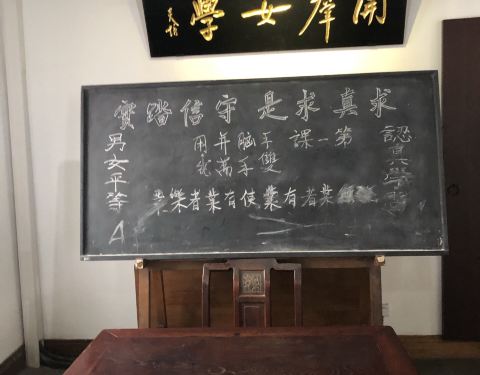 開群女學
求真求是守信踏實
認真學習
第一課
手腦并用
雙手萬能
者有業使有業者樂
男女平等